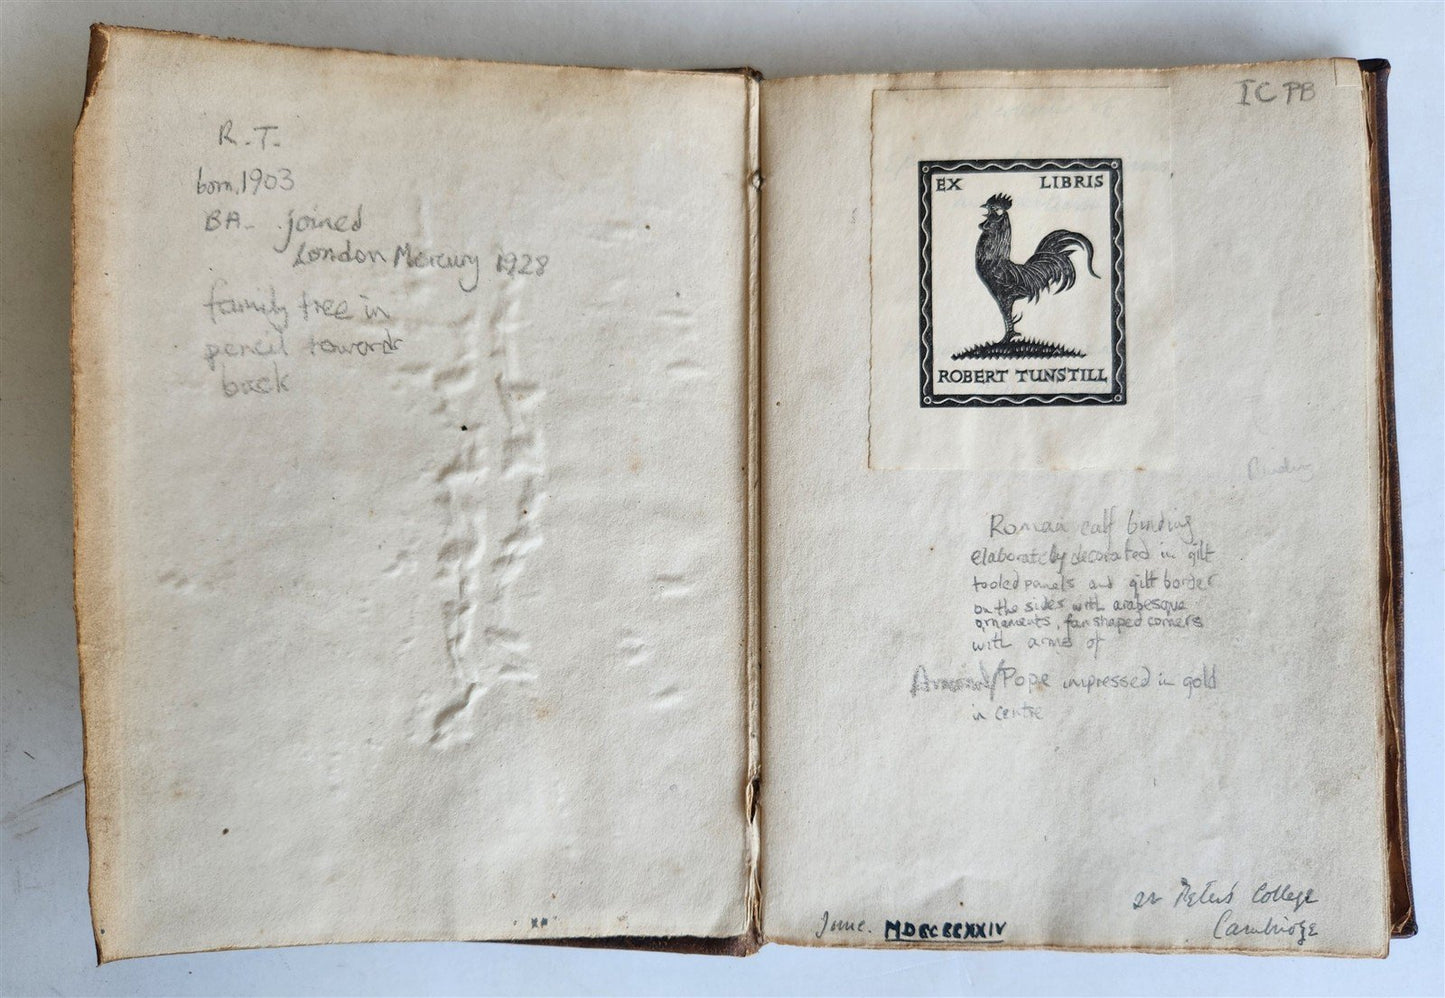 R.T.
born, 1903
BA. joined
London Mercury 1928
family tree in
pencil towards
back
IC PB
EX LIBRIS
ROBERT TUNSTILL
Binding
Roman calf binding
elaborately decorated in gilt
tooled panels and gilt border
on the sides with arabesque
ornaments, fan shaped corners
with arms of
Pope impressed in gold
in centre
St Peter's College
Cambridge
June. MDCCCCXXIV